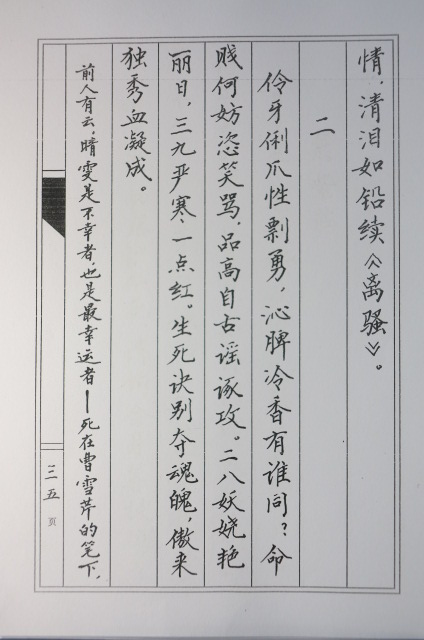 情，清泪如铅续《离骚》。
二
伶牙俐爪性剽勇，沁脾冷香有谁同？命
贱何妨恣笑骂，品高自古谣诼攻。二八妖娆艳
丽日，三九严寒一点红。生死诀别夺魂魄，傲来
独秀血凝成。
前人有云，晴雯是不幸者，也是最幸运者—死在曹雪芹的笔下，
三五页